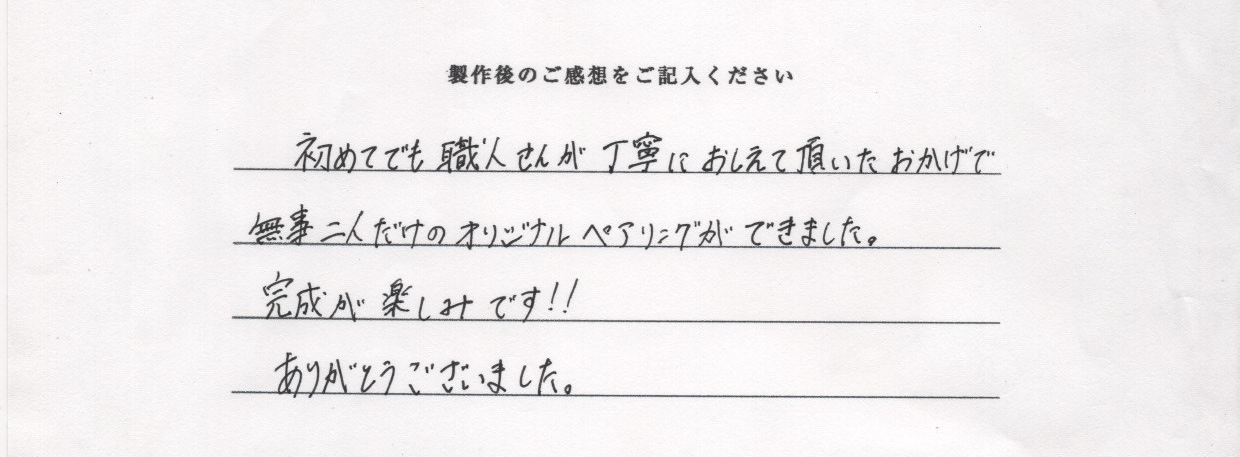 製作後のご感想をご記入ください
初めてでも職人さんが丁寧におしえて頂いたおかげで
無事二人だけのオリジナルペアリングができました。
完成が楽しみです!!
ありがとうございました。